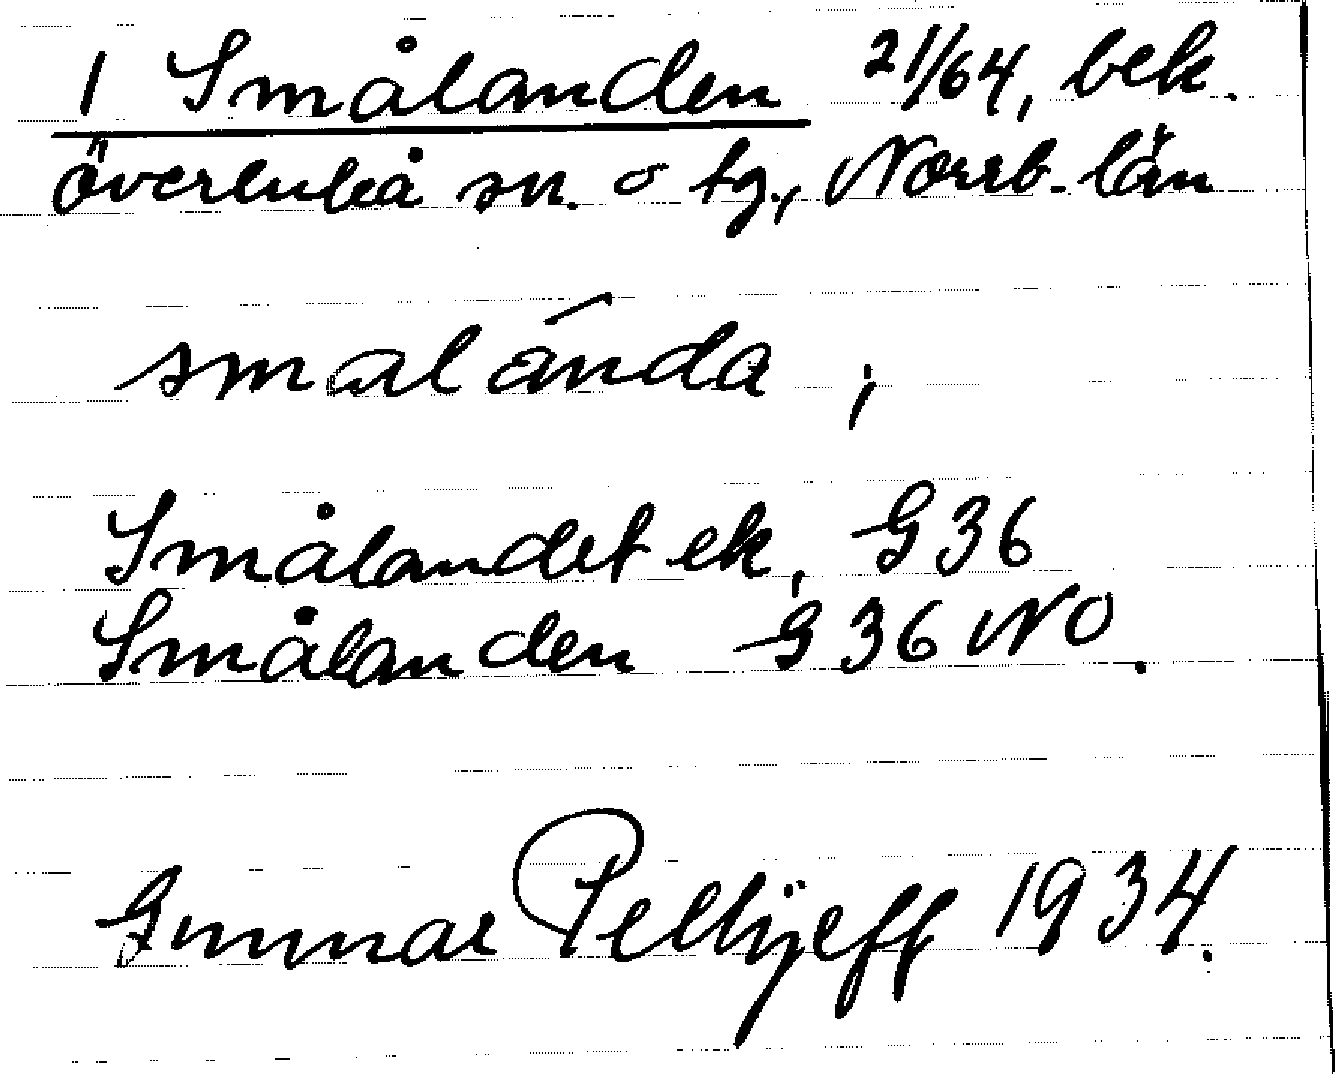 1 Smålanden 21/64, bek.
överluleå sn. o tg., Norrb. län
smalánda ,
Smålandet ek, G 36
Smålanden G 36 NO.
Gunnar Pellijeff 1934.